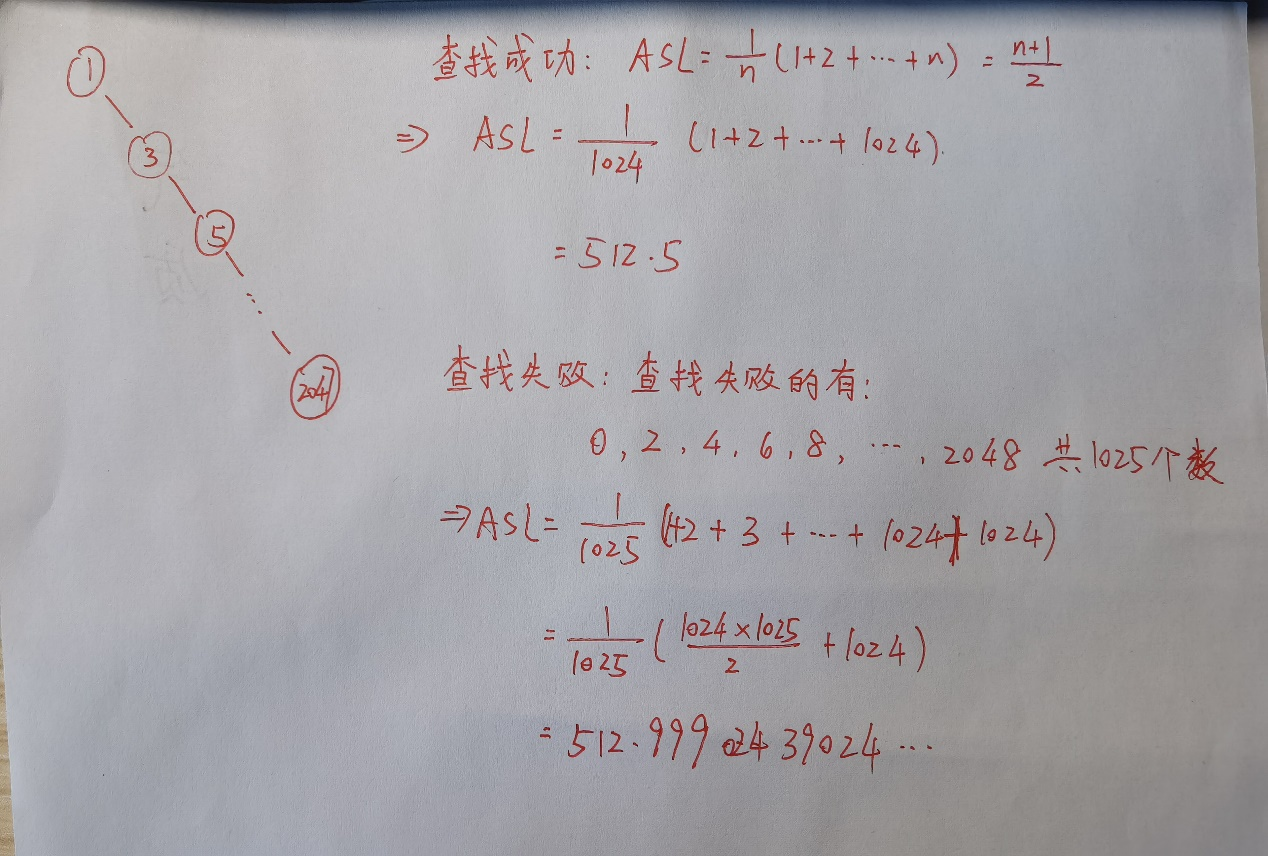 ①
③
⑤
⋱
2047
查找成功: ASL = 1/n (1+2+⋯+n) = (n+1)/2
⇒ ASL = 1/1024 (1+2+⋯+1024).
= 512.5
查找失败: 查找失败的有:
0, 2, 4, 6, 8, ⋯, 2048 共1025个数
⇒ ASL = 1/1025 (1+2+3+⋯+1024+1024)
= 1/1025 (1024×1025/2 + 1024)
= 512.99902439024⋯